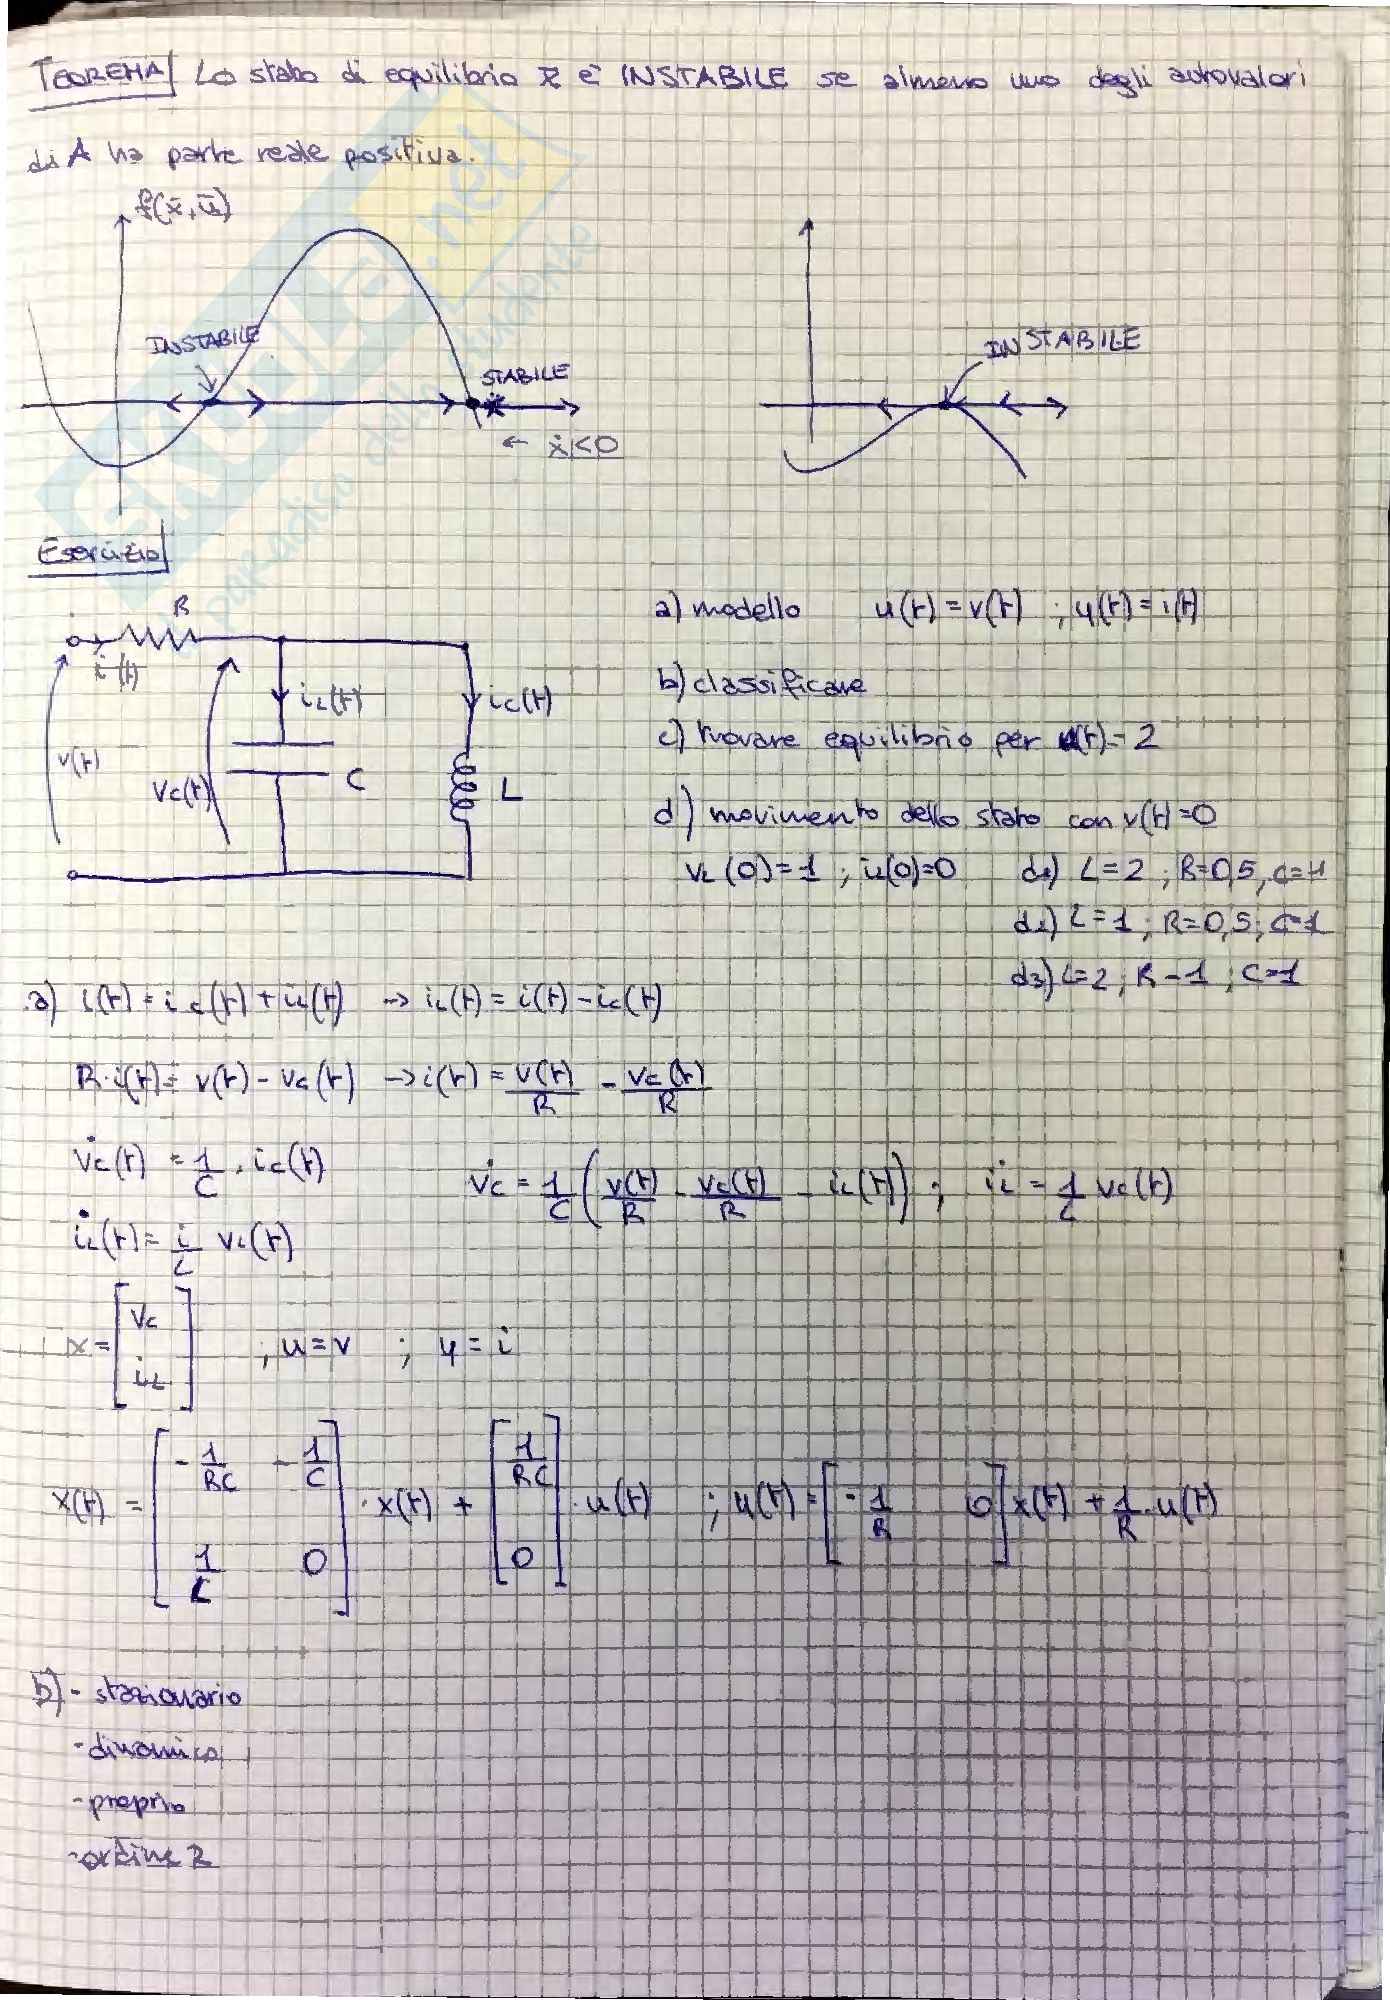 TEOREMA Lo stato di equilibrio x̄ è INSTABILE se almeno uno degli autovalori
di A ha parte reale positiva.
f(x̄,ū)
INSTABILE
STABILE
← ẋ<0
INSTABILE
Skuola.net
paradiso dello studente
Esercizio
R
i(t)
iL(t)
iC(t)
v(t)
Vc(t)
C
L
a) modello u(t) = v(t) ; y(t) = i(t)
b) classificare
c) trovare equilibrio per u(t) = 2
d) movimento dello stato con v(t) = 0
vL(0) = 1 ; iL(0) = 0 d1) L=2 ; R=0,5, C=4
d2) L=1 ; R=0,5 ; C=1
d3) L=2 ; R=1 ; C=1
a) i(t) = ic(t) + iL(t) → iL(t) = i(t) - ic(t)
R·i(t) = v(t) - vc(t) → i(t) = v(t)/R - vc(t)/R
v̇c(t) = 1/C · ic(t) v̇c = 1/C ( v(t)/R - vc(t)/R - iL(t) ) ; i̇L = 1/L vc(t)
i̇L(t) = i/L vL(t)
x = [ vc iL ] ; u = v ; y = i
x(t) = [ -1/RC -1/C 1/L 0 ] · x(t) + [ 1/RC 0 ] · u(t) ; y(t) = [ -1/R 0 ] x(t) + 1/R · u(t)
b) - stazionario
- dinamico
- proprio
- ordine 2